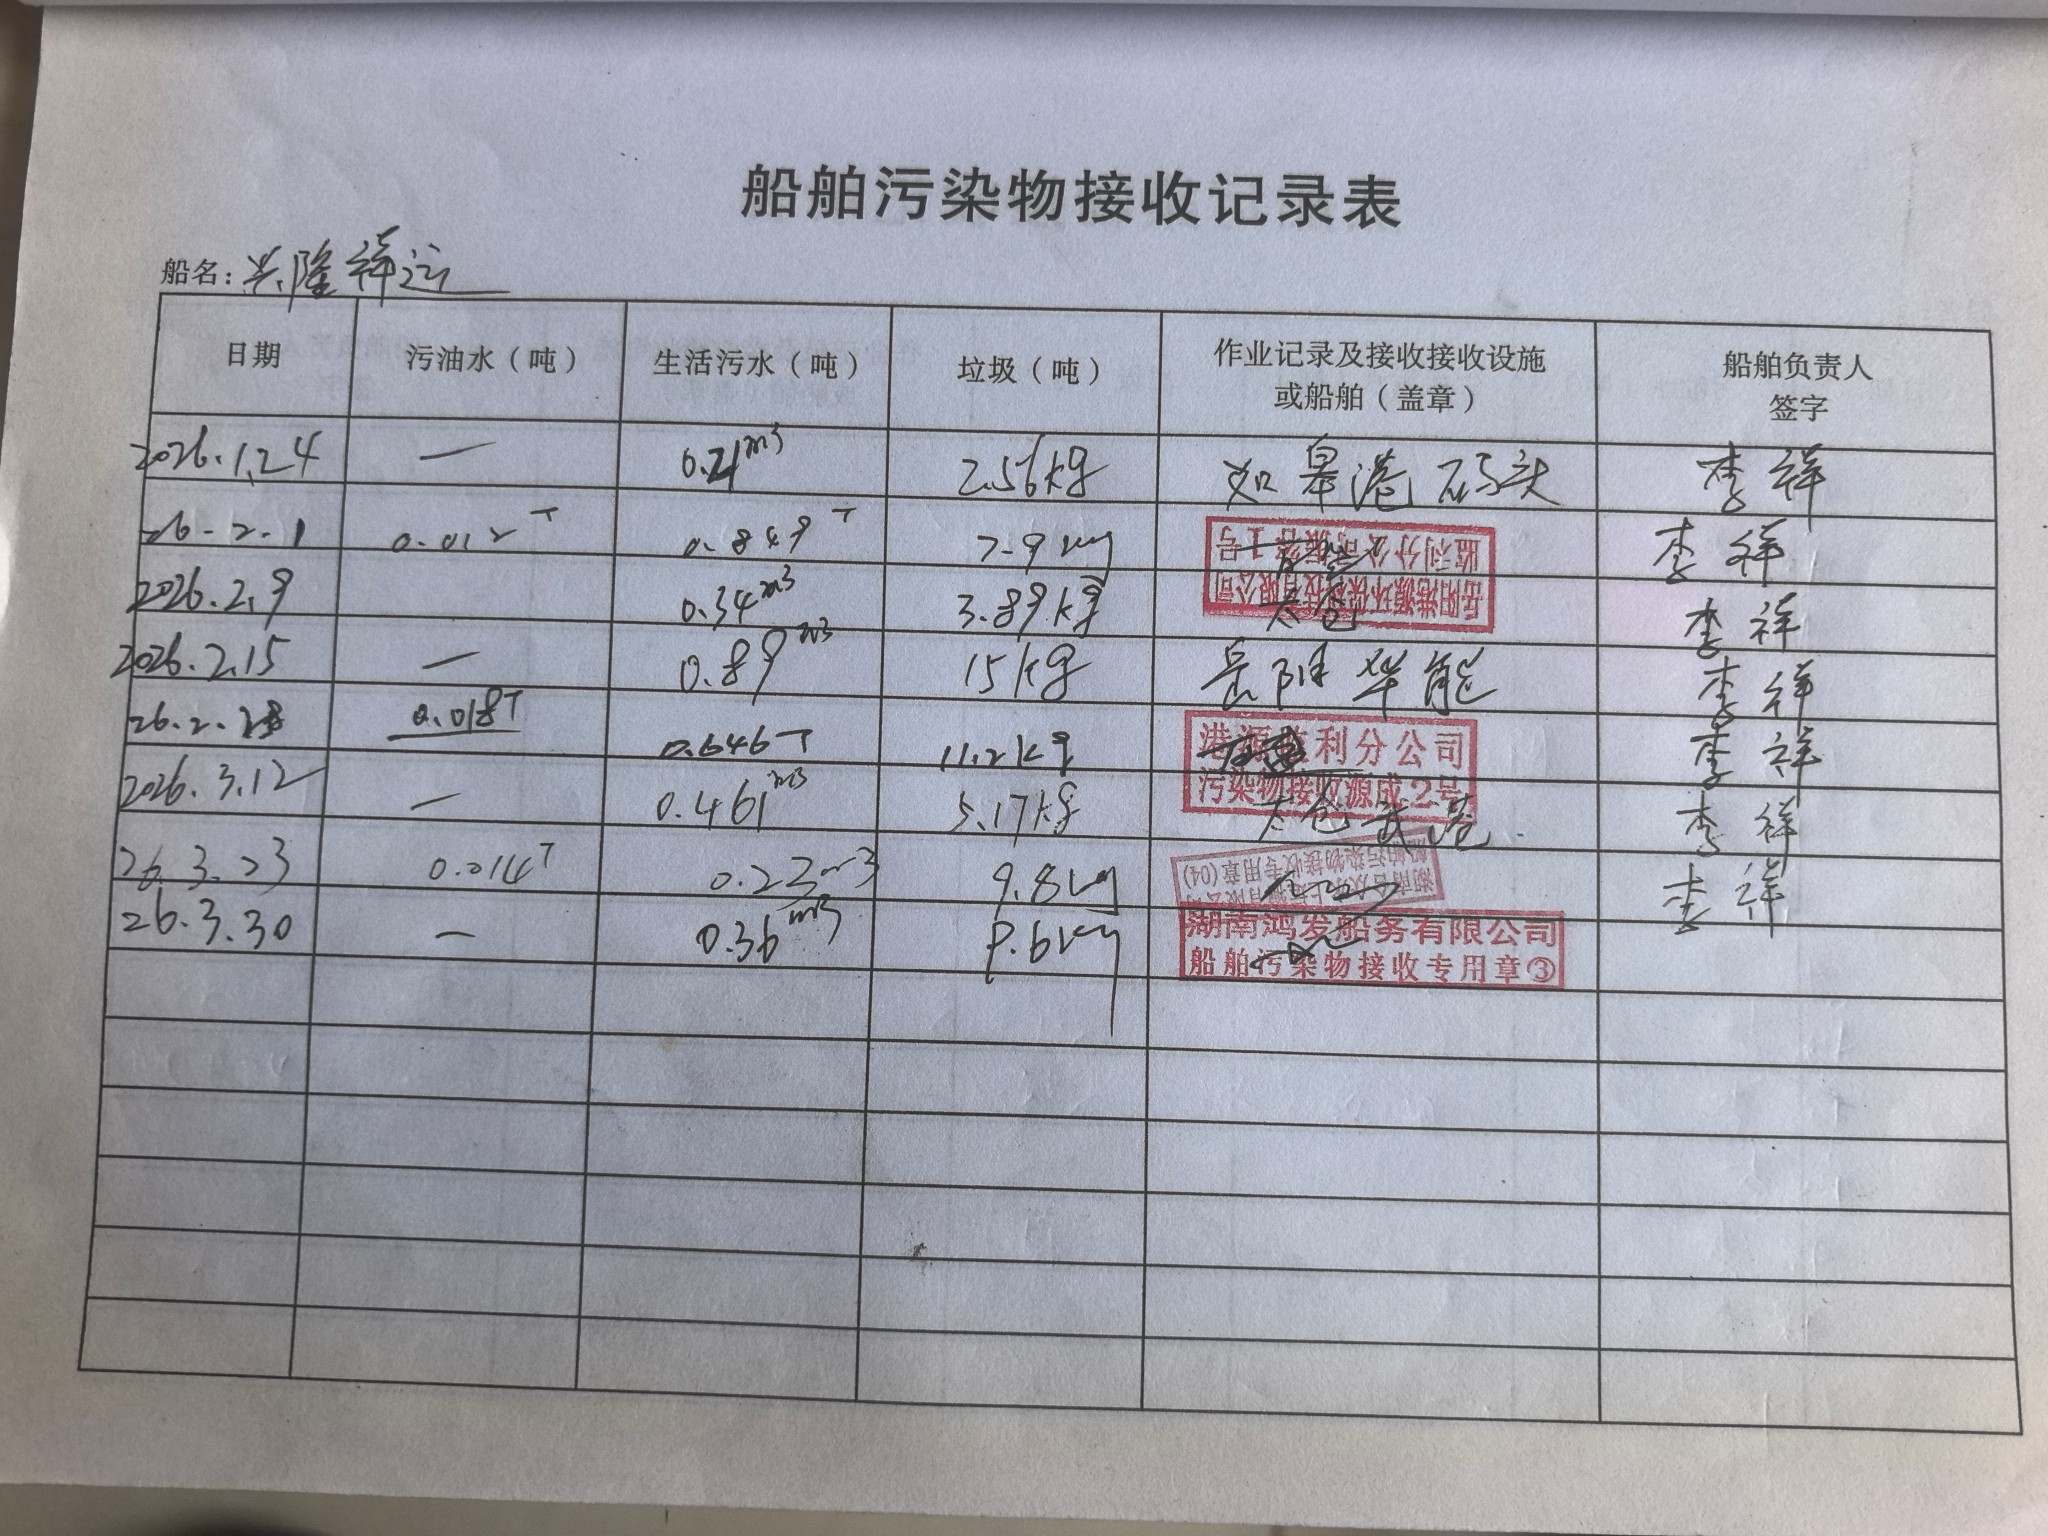 船舶污染物接收记录表
船名：兴隆祥运
日期 污油水（吨） 生活污水（吨） 垃圾（吨） 作业记录及接收接收设施或船舶（盖章） 船舶负责人签字
2026.1.24 — 0.21m3 2.56kg 如皋港码头 李祥
26.2.1 0.012T 0.849T 7.9kg 岳阳港源环保科技有限公司 监利分公司 1号 李祥
2026.2.9 0.34m3 3.89kg 太仓 李祥
2026.2.15 — 0.89m3 15kg 岳阳华能 李祥
26.2.28 0.018T 0.646T 11.2kg 港源监利分公司 污染物接收源成2号 李祥
2026.3.12 — 0.461m3 5.17kg 太仓武港 李祥
26.3.23 0.014T 0.23m3 9.8kg 船舶污染物接收专用章(04) 李祥
26.3.30 — 0.36m3 8.6kg 湖南鸿发船务有限公司 船舶污染物接收专用章③